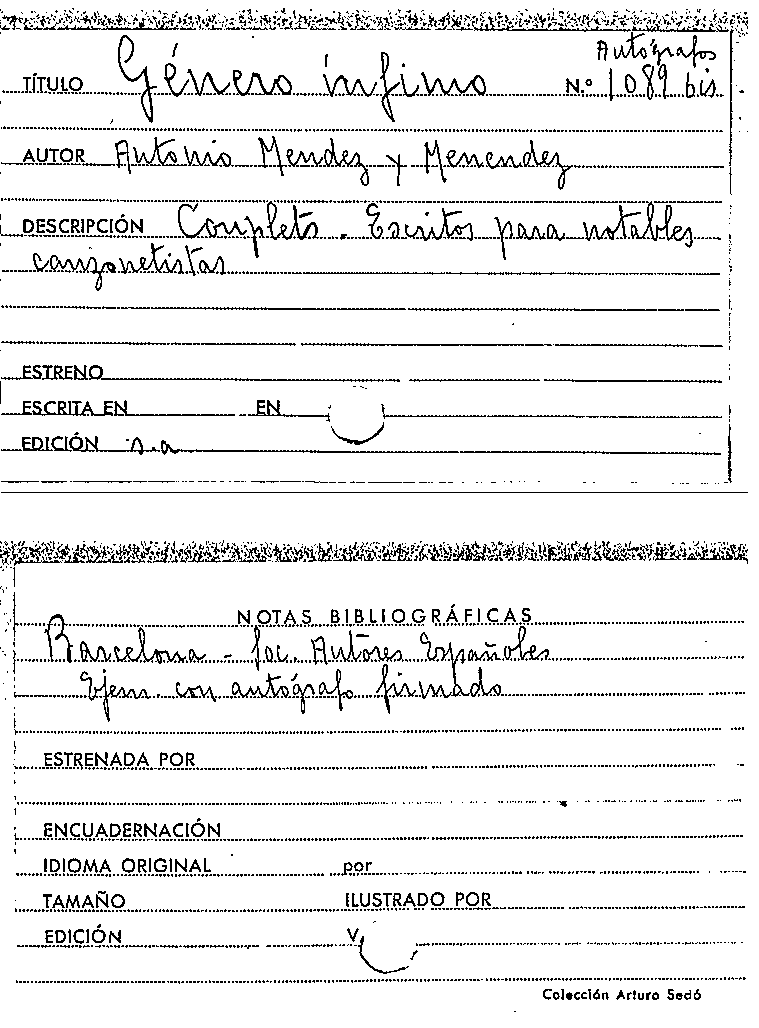 Autógrafos
TÍTULO Género ínfimo N.º 1089 bis
AUTOR Antonio Mendez y Menendez
DESCRIPCIÓN Couplets. Escritos para notables
canzonetistas
ESTRENO
ESCRITA EN EN
EDICIÓN s.a
NOTAS BIBLIOGRÁFICAS
Barcelona - Soc. Autores Españoles
Ejem. con autógrafo firmado
ESTRENADA POR
ENCUADERNACIÓN
IDIOMA ORIGINAL por
TAMAÑO ILUSTRADO POR
EDICIÓN V.
Colección Arturo Sedó